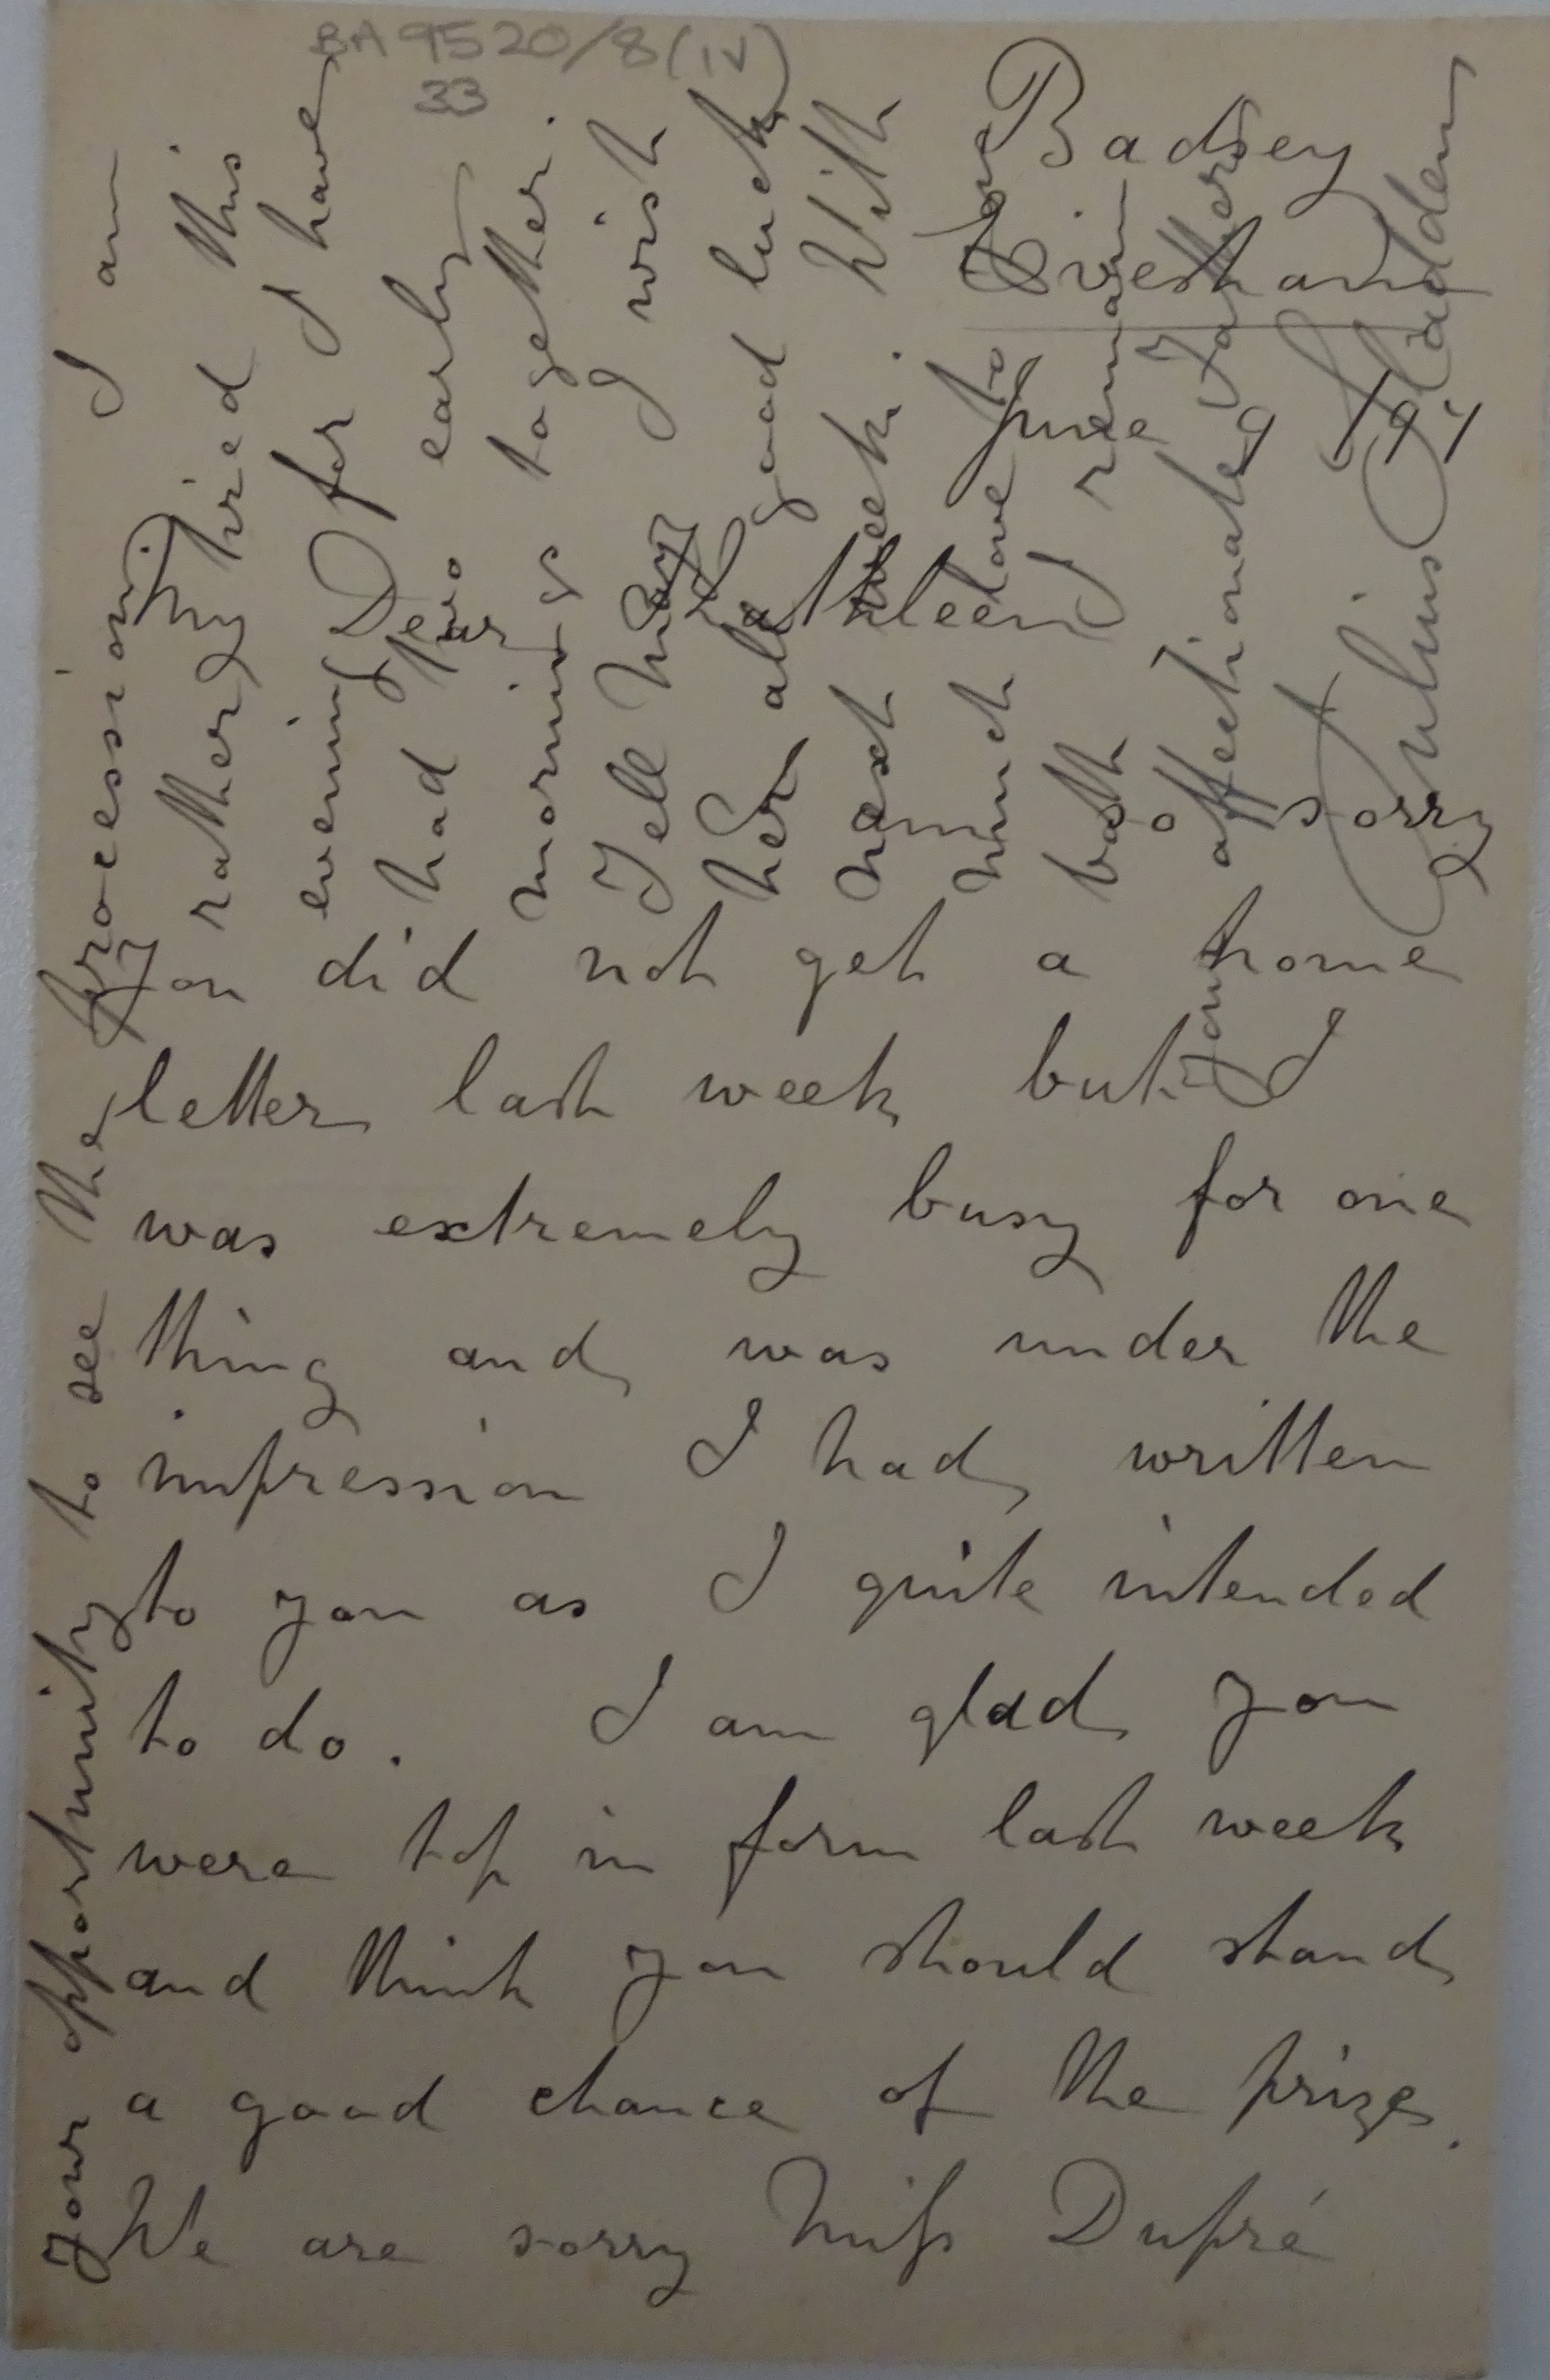 BA 9520/8(iv)
33
Badsey
Evesham
June 9 /97
My
Dear Kathleen
So sorry
you did not get a home
letter last week but I
was extremely busy for one
thing and was under the
impression I had written
to you as I quite intended
to do. I am glad you
were top in form last week
and think you should stand
a good chance of the prize.
We are sorry Miss Dupré
your opportunity to see the procession. I am
rather tired this
evening for I have
had two early
mornings together.
Tell May I wish
her all good luck
next week. With
much love to you
both I remain
your affectionate Father
Julius Sladden